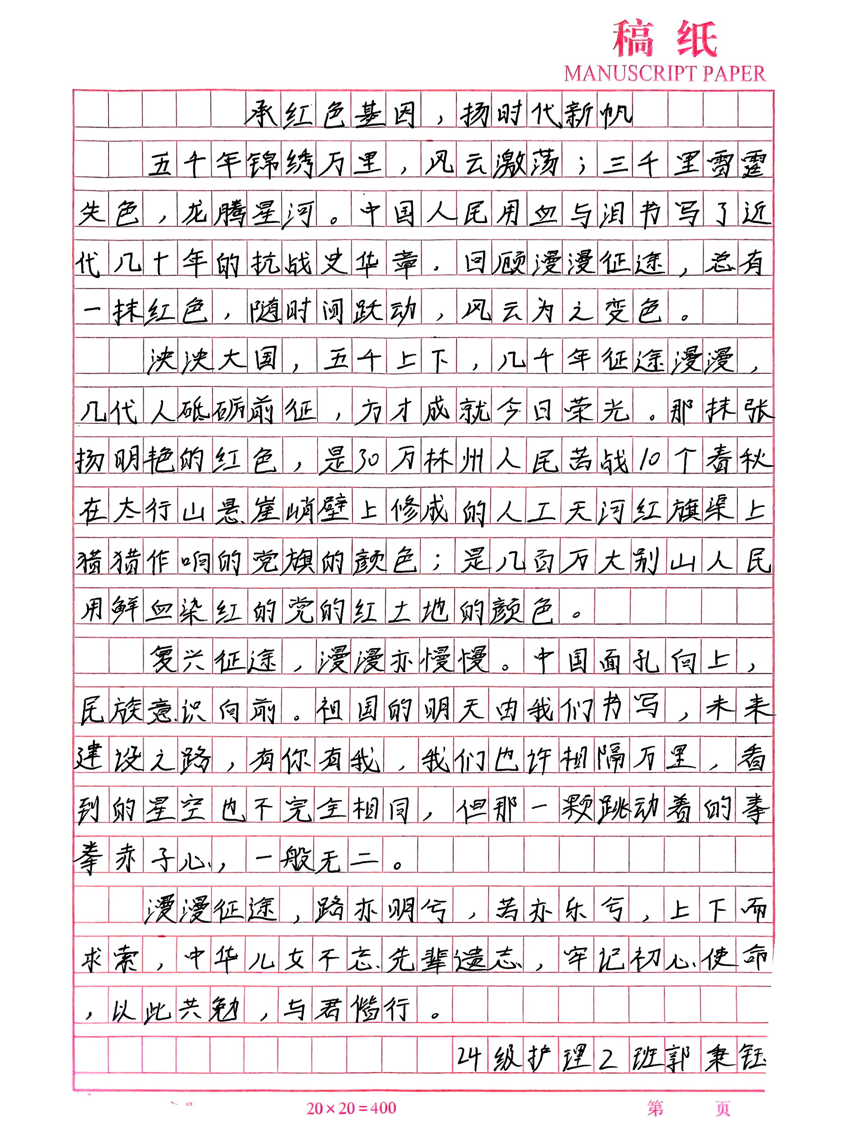 稿纸
MANUSCRIPT PAPER
承红色基因，扬时代新帆
五千年锦绣万里，风云激荡；三千里雷霆
失色，龙腾星河。中国人民用血与泪书写了近
代几十年的抗战史华章．回顾漫漫征途，总有
一抹红色，随时间跃动，风云为之变色。
泱泱大国，五千上下，几千年征途漫漫，
几代人砥砺前征，方才成就今日荣光。那抹张
扬明艳的红色，是30万林州人民苦战10个春秋
在太行山悬崖峭壁上修成的人工天河红旗渠上
猎猎作响的党旗的颜色；是几百万大别山人民
用鲜血染红的党的红土地的颜色。
复兴征途，漫漫亦慢慢。中国面孔向上，
民族意识向前。祖国的明天由我们书写，未来
建设之路，有你有我，我们也许相隔万里，看
到的星空也不完全相同，但那一颗跳动着的拳
拳赤子心，一般无二。
漫漫征途，路亦明兮，苦亦乐兮，上下而
求索，中华儿女不忘先辈遗志，牢记初心使命
，以此共勉，与君偕行。
24级护理2班郭秉钰
20×20=400
第 页